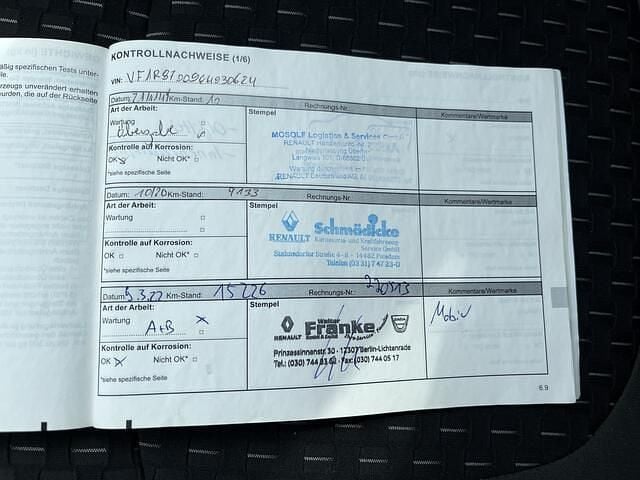 äßig spezifischen Tests unter-
rzeugs unverändert erhalten
urden, die auf der Rückseite
KONTROLLNACHWEISE (1/6)
VIN:
Datum: Km-Stand: 10 Rechnungs-Nr.: Kommentare/Wertmarke
Art der Arbeit: Stempel
Wartung
Übergabe
Kontrolle auf Korrosion:
OK Nicht OK*
*siehe spezifische Seite
MOSOLF Logistics & Services GmbH
RENAULT Deutschland AG
Datum: 10/20 Km-Stand: 9133 Rechnungs-Nr.: Kommentare/Wertmarke
Art der Arbeit: Stempel
Wartung
Kontrolle auf Korrosion:
OK Nicht OK*
*siehe spezifische Seite
RENAULT
Schmädicke
Karosserie- und Kraftfahrzeug-
Service GmbH
Stahnsdorfer Straße 4-8 - 14482 Potsdam
Telefon (03 31) 7 47 23-0
Datum: 5.3.22 Km-Stand: 15226 Rechnungs-Nr.: 220313 Kommentare/Wertmarke
Art der Arbeit: Stempel
Wartung X
A+B
Kontrolle auf Korrosion:
OK X Nicht OK*
*siehe spezifische Seite
RENAULT
Walter
Franke
Prinzessinnenstr. 30 · 12307 Berlin-Lichtenrade
Fax: (030) 744 05 17
6.9